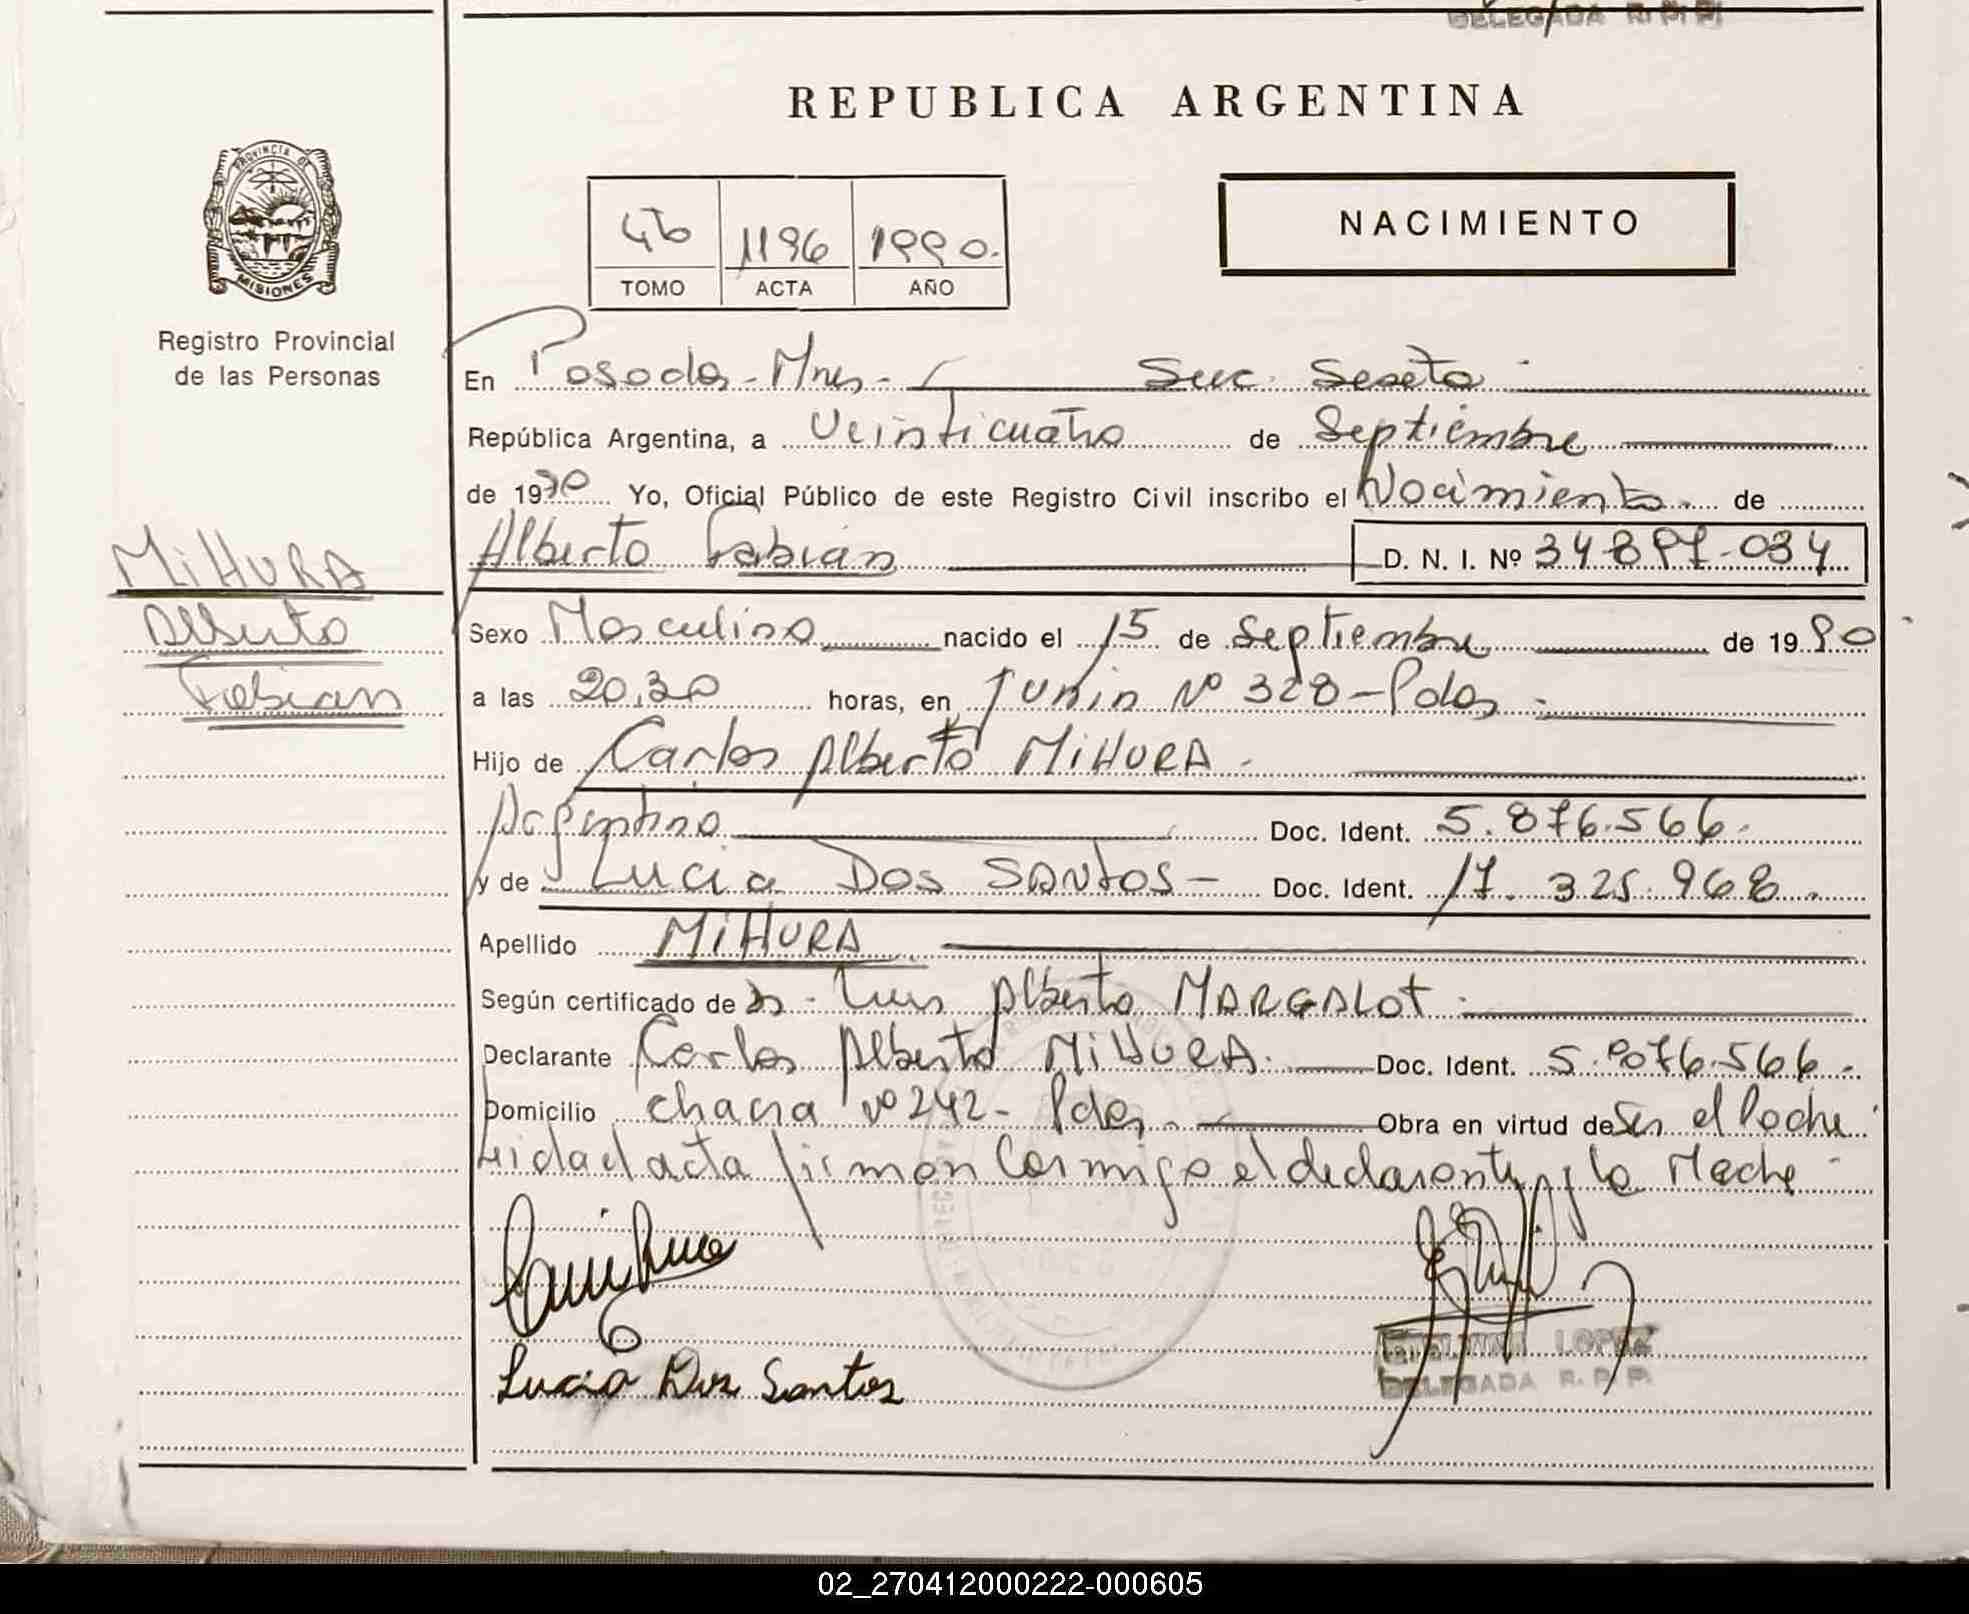 DELEGADA R. P. P.
REPUBLICA ARGENTINA
PROVINCIA DE
MISIONES
NACIMIENTO
1196 1990.
TOMO ACTA AÑO
Registro Provincial
de las Personas
En Posadas - Mnes - Secc. Sexta
República Argentina, a Veinticuatro de Septiembre
de 1990 Yo, Oficial Público de este Registro Civil inscribo el Nacimiento. de
Alberto Fabián D. N. I. Nº 34.897.034
MiHURA
Alberto
Fabian
Sexo Masculino nacido el 15 de Septiembre de 1990
a las 20,30 horas, en Junin Nº 328 - Pdas
Hijo de Carlos Alberto MiHURA -
Argentino Doc. Ident. 5.876.566.
y de Lucia Dos SANtOS - Doc. Ident. 17.325.968.
Apellido MiHURA
Según certificado de Luis Alberto MARGALOt
Declarante Carlos Alberto MiHURA. Doc. Ident. 5.876.566.
Domicilio chacra nº 242 - Pdas Obra en virtud de Ser el Padre
Leida el acta firman conmigo el declarante y la Madre
Lucia Dos Santos
LOPEZ
DELEGADA R. P. P.
02_270412000222-000605